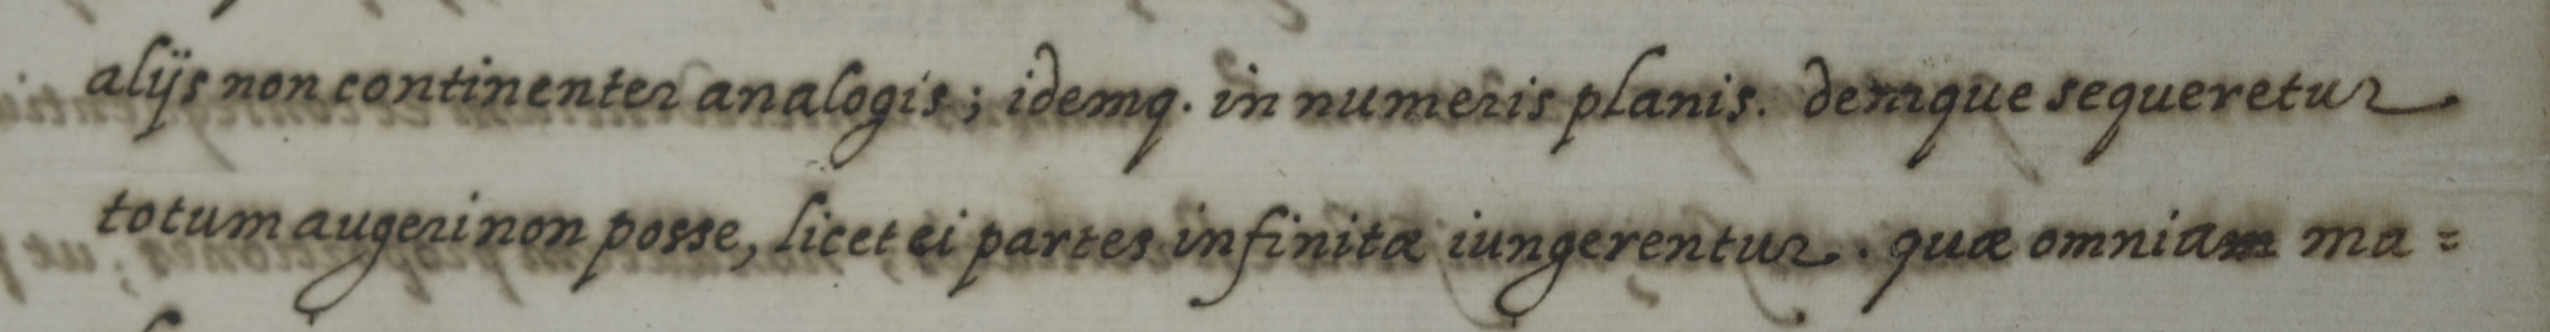 alijs non continenter analogis; idemq. in numeris planis. demque sequeretur
totum augeri non posse, licet ei partes infinitæ iungerentur. quæ omnia in ma=